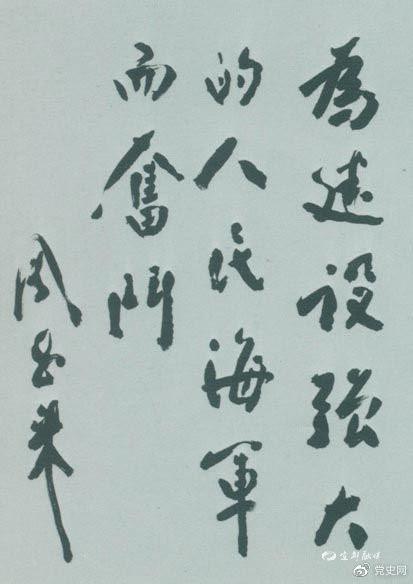 為建设強大
的人民海軍
而奮鬥
周恩来
党史网